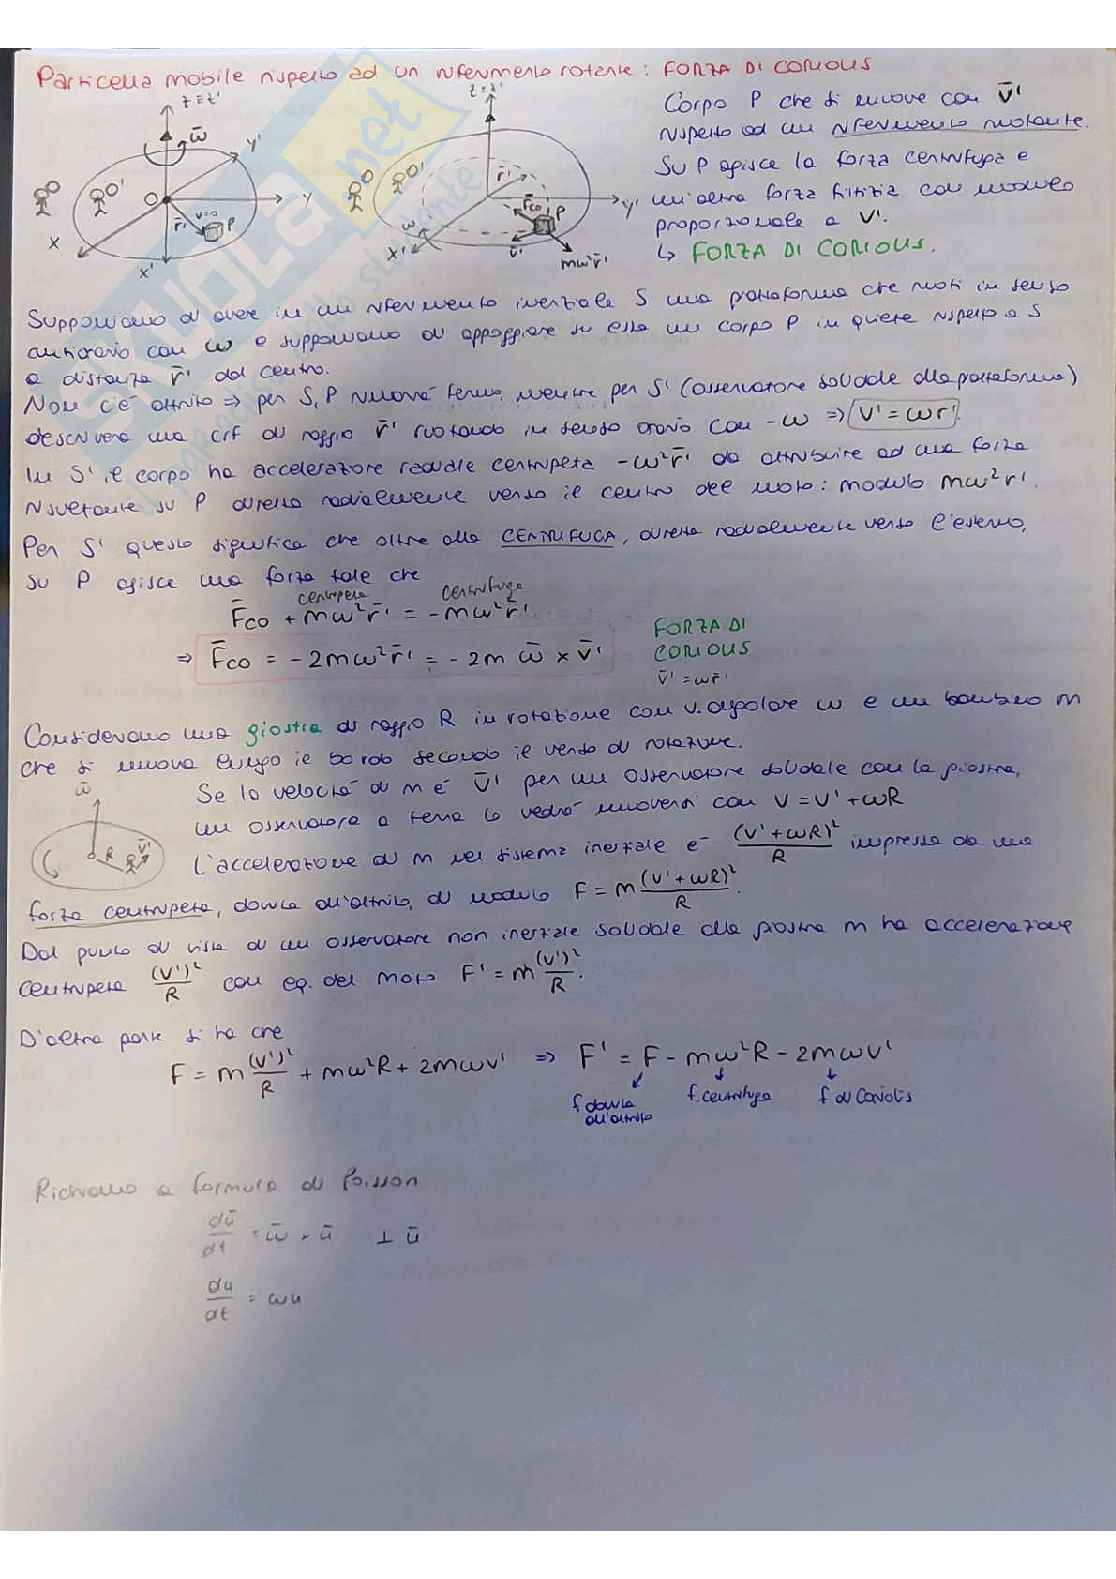 Particella mobile rispetto ad un riferimento rotante: FORZA DI CORIOLIS
z≡z'
ω̄
y'
O'
O
O
y
v=0
r̄'
P
x
x'
z≡z'
O'
O
r̄'
F̄co
P
y'
ω
x'
v̄'
mω²r̄'
Corpo P che si muove con v̄'
rispetto ad un riferimento ruotante.
Su P agisce la forza centrifuga e
un'altra forza fittizia con modulo
proporzionale a v'.
↳ FORZA DI CORIOLIS.
Supponiamo di avere in un riferimento inerziale S una piattaforma che ruoti in senso
antiorario con ω e supponiamo di appoggiare su essa un corpo P in quiete rispetto a S
a distanza r̄' dal centro.
Non c'è attrito ⇒ per S, P rimarrà fermo mentre per S' (osservatore solidale alla piattaforma)
descriverà una crf di raggio r̄' ruotando in senso orario con -ω ⇒ v' = ωr'.
In S' il corpo ha accelerazione radiale centripeta -ω²r̄' da attribuire ad una forza
risultante su P diretta radialmente verso il centro del moto: modulo mω²r'.
Per S' questo significa che oltre alla CENTRIFUGA, diretta radialmente verso l'esterno,
su P agisce una forza tale che
centripeta centrifuga
F̄co + mω²r̄' = -mω²r̄'
⇒ F̄co = -2mω²r̄' = -2m ω̄ × v̄'
FORZA DI
CORIOLIS
v̄' = ωr̄'
Consideriamo una giostra di raggio R in rotazione con v. angolare ω e un bambino m
che si muova lungo il bordo secondo il verso di rotazione.
ω̄
R
v̄'
Se la velocità di m è v̄' per un osservatore solidale con la giostra,
un osservatore a terra lo vedrà muoversi con v = v' + ωR
L'accelerazione di m nel sistema inerziale è (v'+ωR)²/R impressa da una
forza centripeta, dovuta all'attrito, di modulo F = m (v'+ωR)²/R.
Dal punto di vista di un osservatore non inerziale solidale alla giostra m ha accelerazione
centripeta (v')²/R con eq. del moto F' = m (v')²/R.
D'altra parte si ha che
F = m (v')²/R + mω²R + 2mωv' ⇒ F' = F - mω²R - 2mωv'
f dovuta
all'attrito
f. centrifuga
f di Coriolis
Richiamo a formula di Poisson
dū/dt = ω̄ × ū ⊥ ū
du/dt = ωu